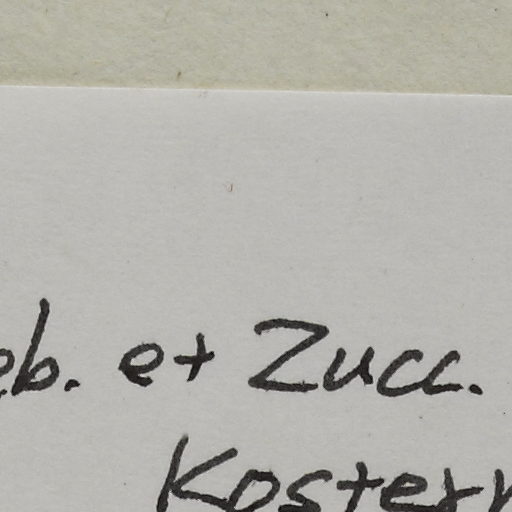 eb. et Zucc.
Koster